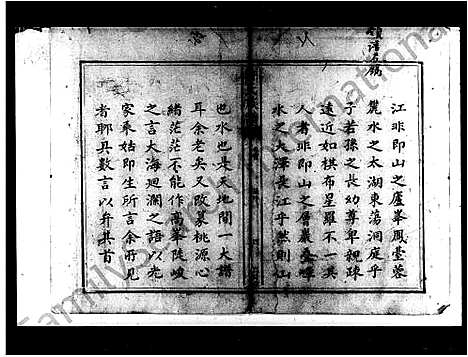 江非即山之廬峯鳳臺蓉
麓水之太湖東蕩洞庭乎
子若孫之長幼尊卑親疎
遠近如棋布星羅不一其
人者非即山之層巖疊嶂
水之大澤長江乎然則山
也水也是天地間一大譜
耳余老矣又政慕桃源心
緒茫茫不能作高峯陡峻
之言大海迴瀾之語以光
家乘姑即生所言余所見
者聊具數言以弁其首